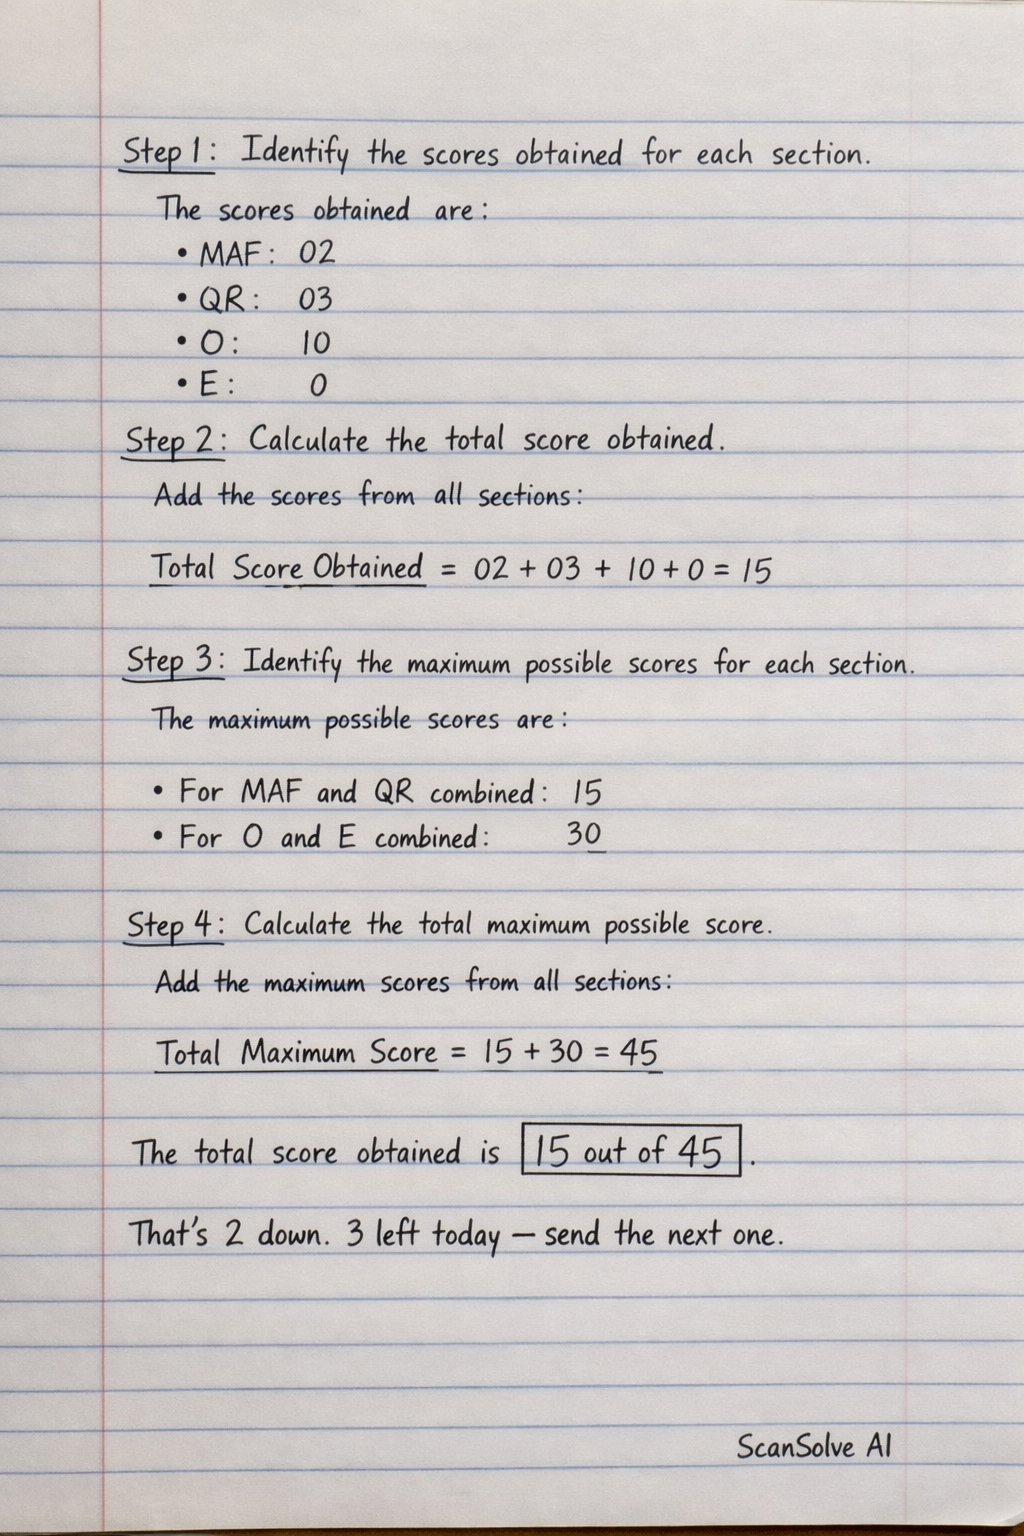 Step 1: Identify the scores obtained for each section.
The scores obtained are:
• MAF: 02
• QR: 03
• O: 10
• E: 0
Step 2: Calculate the total score obtained.
Add the scores from all sections:
Total Score Obtained = 02 + 03 + 10 + 0 = 15
Step 3: Identify the maximum possible scores for each section.
The maximum possible scores are:
• For MAF and QR combined: 15
• For O and E combined: 30
Step 4: Calculate the total maximum possible score.
Add the maximum scores from all sections:
Total Maximum Score = 15 + 30 = 45
The total score obtained is 15 out of 45.
That's 2 down. 3 left today — send the next one.
ScanSolve AI